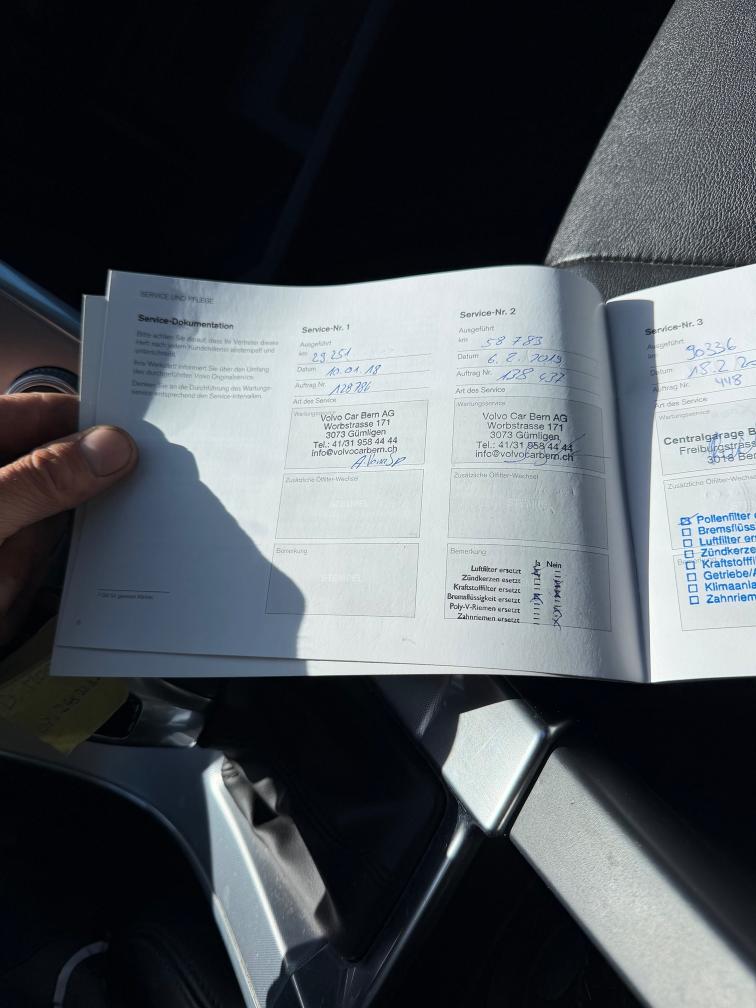 SERVICE UND PFLEGE
Service-Dokumentation
Bitte achten Sie darauf, dass Ihr Vertreter dieses
Heft nach jedem Kundendienst abstempelt und
unterschreibt.
Ihre Werkstatt informiert Sie über den Umfang
des durchgeführten Volvo Originalservice.
Denken Sie an die Durchführung des Wartungs-
service entsprechend den Service-Intervallen.
Service-Nr. 1
Ausgeführt
km 29 251
Datum 10.01.18
Auftrag Nr. 128786
Art des Service
Wartungsservice
Volvo Car Bern AG
Worbstrasse 171
3073 Gümligen
Tel.: 41/31 958 44 44
info@volvocarbern.ch
Zusätzliche Ölfilter-Wechsel
STEMPEL
Bemerkung
STEMPEL
Service-Nr. 2
Ausgeführt
km 58 783
Datum 6. 2. 2019
Auftrag Nr. 138 437
Art des Service
Wartungsservice
Volvo Car Bern AG
Worbstrasse 171
3073 Gümligen
Tel.: 41/31 958 44 44
info@volvocarbern.ch
Zusätzliche Ölfilter-Wechsel
Bemerkung
Ja Nein
Luftfilter ersetzt
Zündkerzen esetzt
Kraftstofffilter ersetzt
Bremsflüssigkeit ersetzt
Poly-V-Riemen ersetzt
Zahnriemen ersetzt
Service-Nr. 3
Ausgeführt
km 90336
Datum 18.2.20
Auftrag Nr. 448
Art des Service
Wartungsservice
Centralgarage B
Freiburgstrass
3018 Ber
Zusätzliche Ölfilter-Wechse
Pollenfilter e
Bremsflüss
Luftfilter ers
Zündkerze
Kraftstofffil
Getriebe/A
Klimaanla
Zahnriem